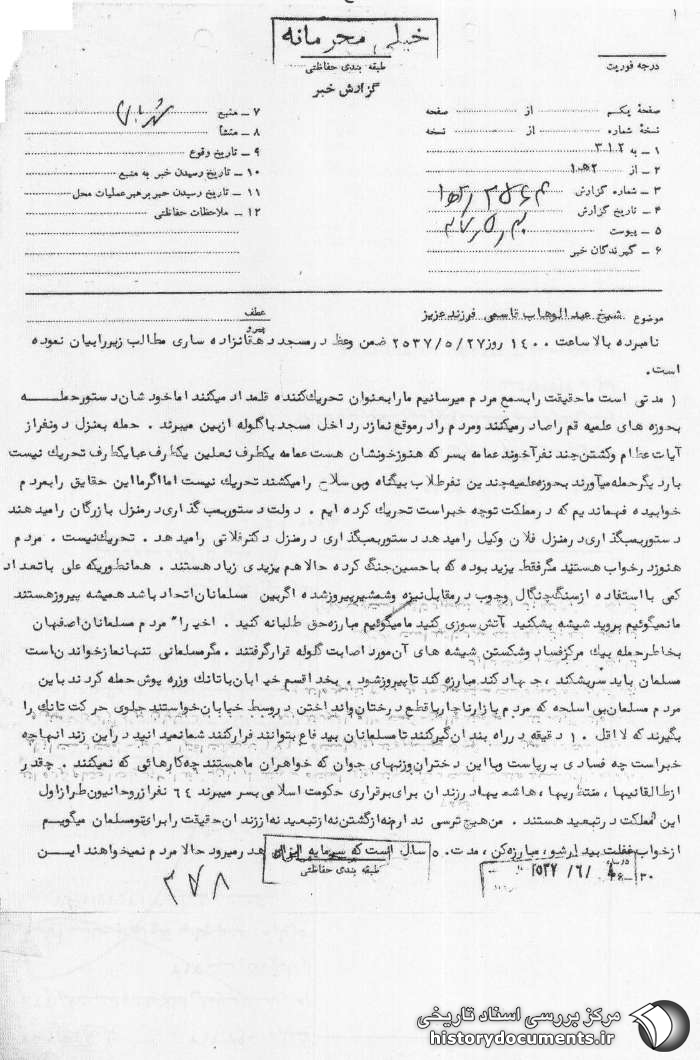 ۱
خیلی محرمانه
طبقه بندی حفاظتی
گزارش خبر
درجه فوریت
صفحهٔ یکم از صفحه
نسخهٔ شماره از نسخه
۱ – به ۳۱۲
۲ – از ۱۰ه۲
۳ – شماره گزارش
۴ – تاریخ گزارش
۵ – پیوست
۶ – گیرندگان خبر
۷ – منبع
۸ – منشأ
۹ – تاریخ وقوع
۱۰ – تاریخ رسیدن خبر به منبع
۱۱ – تاریخ رسیدن خبر برهبر عملیات محل
۱۲ – ملاحظات حفاظتی
موضوع شیخ عبدالوهاب قاسمی فرزند عزیز
عطف
پیرو
نامبرده بالا ساعت ۱۴۰۰ روز ۲۵۳۷/۵/۲۷ ضمن وعظ در مسجد دهقانزاده ساری مطالب زیر را بیان نموده
است.
۱ مدتی است ما حقیقت را بسمع مردم میرسانیم ما را بعنوان تحریک کننده قلمداد میکنند اما خودشان دستور حمله
بحوزه های علمیه قم را صادر میکنند و مردم را در موقع نماز در داخل مسجد با گلوله از بین میبرند . حمله بمنزل دو نفر از
آیات عظام و کشتن چند نفر آخوند عمامه بسر که هنوز خونشان هست عمامه یکطرف نعلین یکطرف عبا یکطرف تحریک نیست
بار دیگر حمله میآورند بحوزه علمیه چندین نفر طلاب بیگناه وبی سلاح را میکشند تحریک نیست اما اگر ما این حقایق را بمردم
خوابیده فهماندیم که در مملکت توجه خبر است تحریک کرده ایم . دولت دستور بمب گذاری در منزل بازرگان را میدهند
دستور بمب گذاری در منزل فلان وکیل را میدهد دستور بمب گذاری در منزل دکتر فلاتی را میدهد . تحریک نیست . مردم
هنوز در خواب هستند مگر فقط یزید بوده که با حسین جنگ کرده حالا هم یزیدی زیاد هستند . همانطوریکه علی با تعداد
کمی با استفاده از سنگ چنگال و چوب در مقابل نیزه و شمشیر پیروز شده اگر بین مسلمانان اتحاد باشد همیشه پیروز هستند
ما نمیگوئیم بروید شیشه بشکنید آتش سوزی کنید ما میگوئیم مبارزه حق طلبانه کنید . اخیرا" مردم مسلمانان اصفهان
بخاطر حمله بیک مرکز فساد و شکستن شیشه های آن مورد اصابت گلوله قرار گرفتند . مگر مسلمانی تنها نماز خواندن است
مسلمان باید سر بشکند ، جهاد کند مبارزه کند تا پیروز شود . بخدا قسم خیابان با تانک وزره پوش حمله کردند باین
مردم مسلمان بی اسلحه که مردم بازار ناچار با قطع درختان و انداختن در وسط خیابان خواستند جلوی حرکت تانک را
بگیرند که لا اقل ۱۰ دقیقه در راه بندان گیر کنند تا مسلمانان بیدفاع بتوانند فرار کنند شما نمیدانید در این زندانها چه
خبر است چه فسادی بر پاست وبا این دختران وزنهای جوان که خواهران ما هستند چه کارهائی که نمیکنند . چقدر
از طالقانیها ، منتظریها ، هاشمیها در زندان برای برقراری حکومت اسلامی بسر میبرند ۶۴ نفر از روحانیون طراز اول
این مملکت در تبعید هستند . من هیچ ترسی ندارم نه از کشتن نه از تبعید نه از زندان حقیقت را برای تو مسلمان میگویم
از خواب غفلت بیدار شو ، مبارزه کن ، مدت ۵۰ سال است که سرمایه ایران هدر میرود حالا مردم نمیخواهند این
طبقه بندی حفاظتی
۲۵۳۷/۶/
۳۷۸
مرکز بررسی اسناد تاریخی
historydocuments.ir